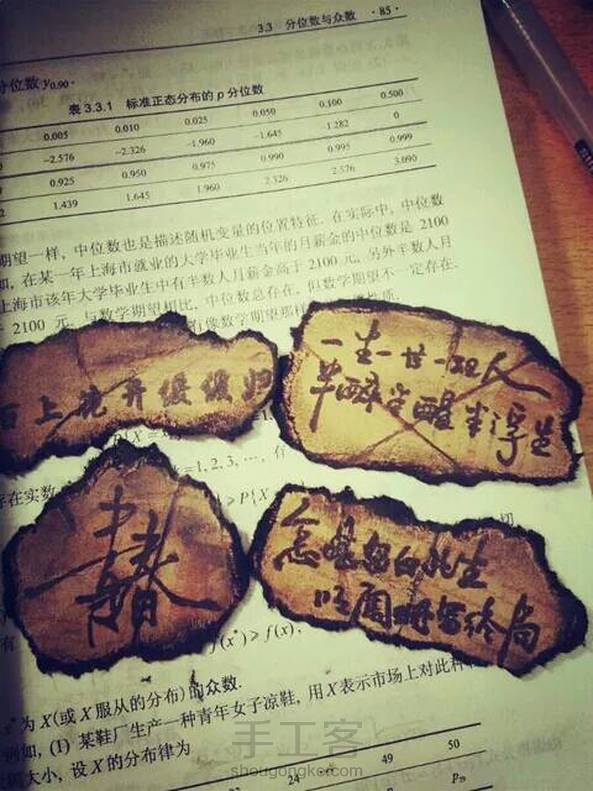 3.3 分位数与众数 ·85·
分位数 y₀.₉₀.
表 3.3.1 标准正态分布的 p 分位数
0.005 0.010 0.025 0.050 0.100 0.500
-2.576 -2.326 -1.960 -1.645 -1.282 0
0.925 0.950 0.975 0.990 0.995 0.999
1.439 1.645 1.960 2.326 2.576 3.090
期望一样，中位数也是描述随机变量的位置特征. 在实际中，中位数
如，在某一年上海市就业的大学毕业生当年的月薪金的中位数是 2100
上海市该年大学毕业生中有半数人月薪金高于 2100 元，另外半数人月
2100 元. 与数学期望相比，中位数总存在，但数学期望不一定存在.
有像数学期望那样
上花开缓缓归
一生一世一双人
半醉半醒半浮生
P{X =
k = 1, 2, 3, ⋯,
存在实数
≥ P{X
青春
终局
f(x*) ≥ f(x),
为 X(或 X 服从的分布) 的众数.
例如，(1) 某鞋厂生产一种青年女子凉鞋，用 X 表示市场上对此种
大小，设 X 的分布律为
24 49 50
手工客
shougongke.com